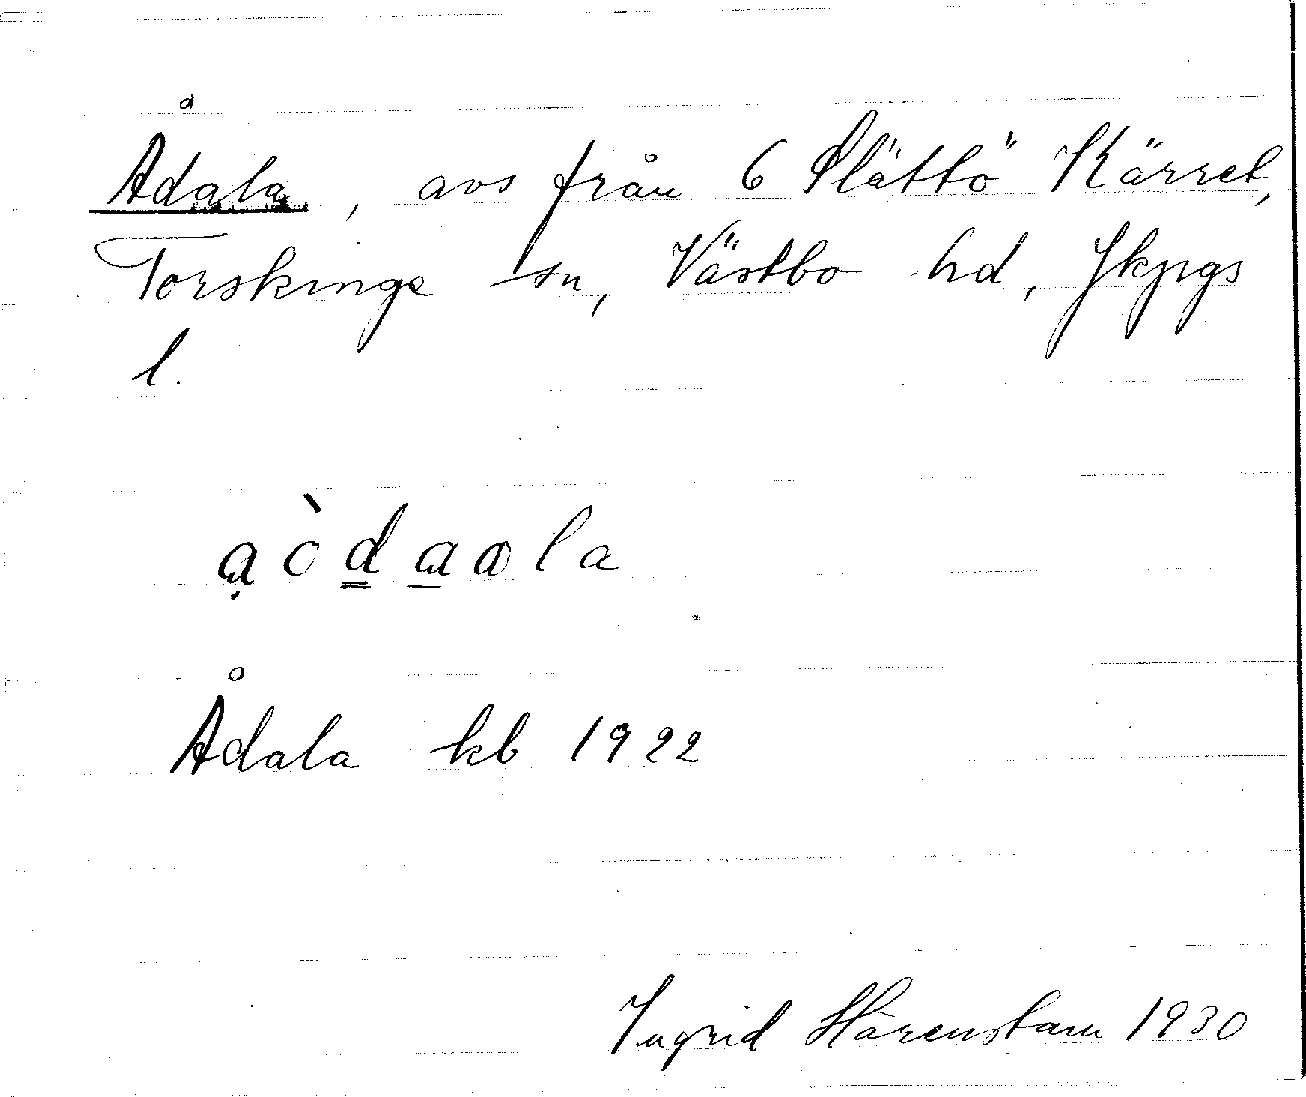 Ådala, avs från 6 Slättö Kärret,
Torskinge sn, Västbo hd, Jkpgs
l.
a̤òd̳a̲ɑla
Ådala kb 1922
Ingrid Härenstam 1930